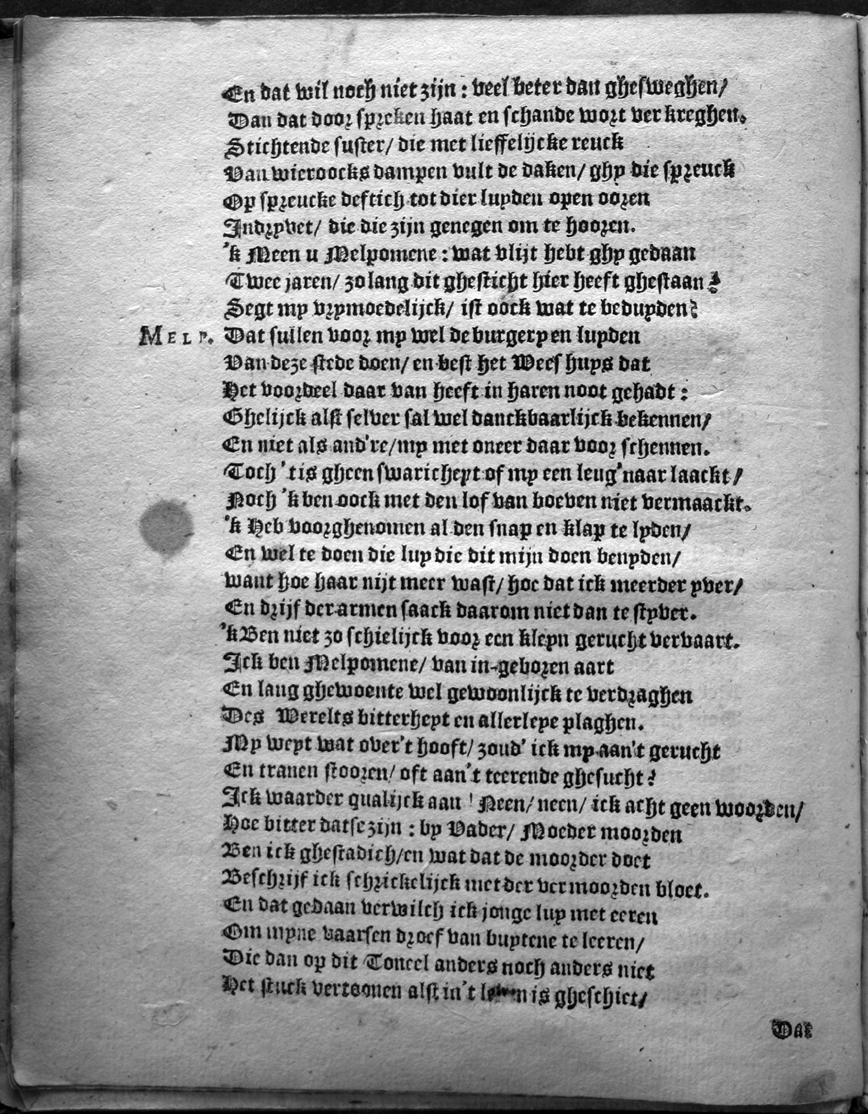 En dat wil noch niet zijn : veel beter dan ghesweghen/
Dan dat door spreken haat en schande wort verkreghen.
Stichtende suster/ die met lieffelijcke reuck
Van wieroocks dampen vult de daken/ ghy die spreuck
Op spreucke deftich tot dier luyden open ooren
Indryvet/ die die zijn genegen om te hooren.
'k Meen u Melpomene : wat vlijt hebt ghy gedaan
Twee jaren/ zo lang dit ghesticht hier heeft ghestaan?
Segt my vrymoedelijck/ ist oock wat te beduyden?
MELP. Dat sullen voor my wel de burgery en luyden
Van deze stede doen/ en best het Weeshuys dat
Het voordeel daar van heeft in haren noot gehadt :
Ghelijck alst selver sal wel danckbaarlijck bekennen/
En niet als and're/ my met oneer daar voor schennen.
Toch 'tis gheen swaricheyt of my een leug'naar laackt/
Noch 'k ben oock met den lof van boeven niet vermaackt.
'k Heb voorghenomen al den snap en klap te lyden/
En wel te doen die luy die dit mijn doen benyden/
want hoe haar nijt meer wast/ hoe dat ick meerder yver/
En drijf der armen saack daarom niet dan te styver.
'k Ben niet zo schielijck voor een kleyn gerucht vervaart.
Ick ben Melpomene/ van in-geboren aart
En lang ghewoente wel gewoonlijck te verdraghen
Des Werelts bitterheyt en allerleye plaghen.
My weyt wat over't hooft/ zoud' ick my aan't gerucht
En tranen stooren/ oft aan't teerende ghesucht?
Ick waarder qualijck aan ! Neen/ neen/ ick acht geen woorden/
Hoe bitter datse zijn : by Vader/ Moeder moorden
Ben ick ghestadich/ en wat dat de moorder doet
Beschrijf ick schrickelijck met der vermoorden bloet.
En dat gedaan verwilch ick jonge luy met eeren
Om myne vaarsen droef van buytene te leeren/
Die dan op dit Toneel anders noch anders niet
Het stuck vertoonen alst in't leven is gheschiet/
Dat